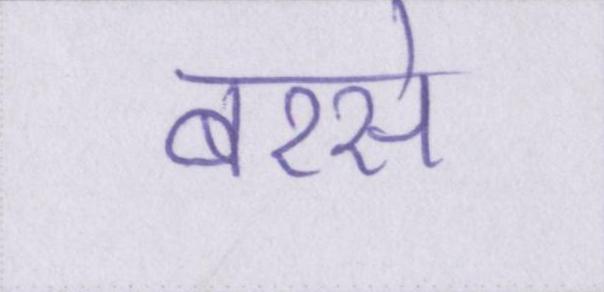 बरसे